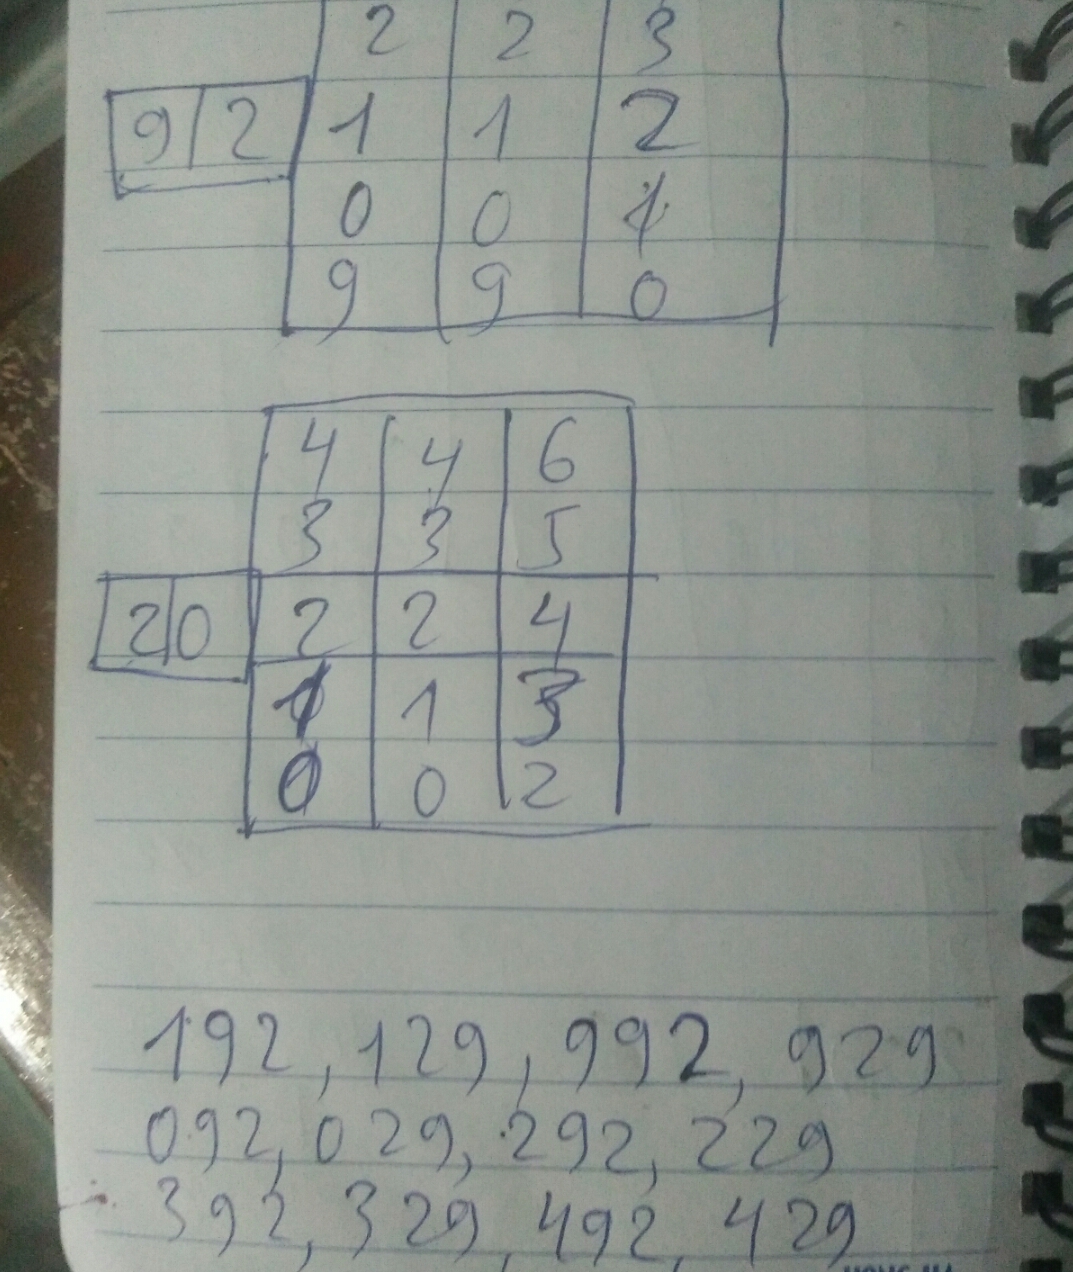 2 2 3
9 2 1 1 2
0 0 1
9 9 0
4 4 6
3 3 5
2 0 2 2 4
1 1 3
0 0 2
192, 129, 992, 929
092, 029, 292, 229
392, 329, 492, 429